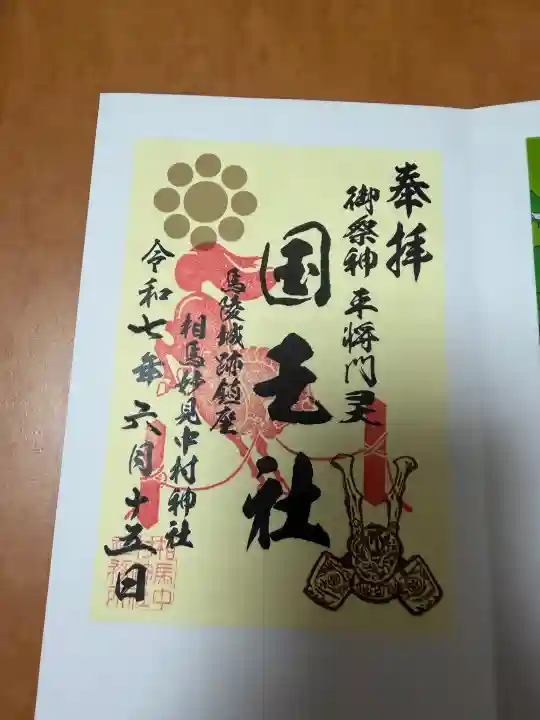 奉拝
御祭神 平将門
国王社
馬陵城跡鎮座
相馬妙見中村神社
令和七年六月十五日